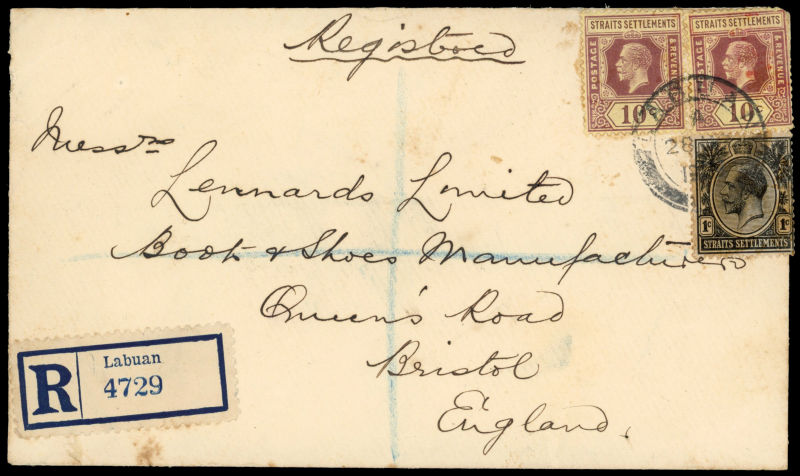 Registered
STRAITS SETTLEMENTS
POSTAGE & REVENUE
10c
STRAITS SETTLEMENTS
POSTAGE & REVENUE
10c
28
1c 1c
STRAITS SETTLEMENTS
Messrs
Lennards Limited
Boot & Shoes Manufacturers
Queen's Road
Bristol
England.
R Labuan
4729